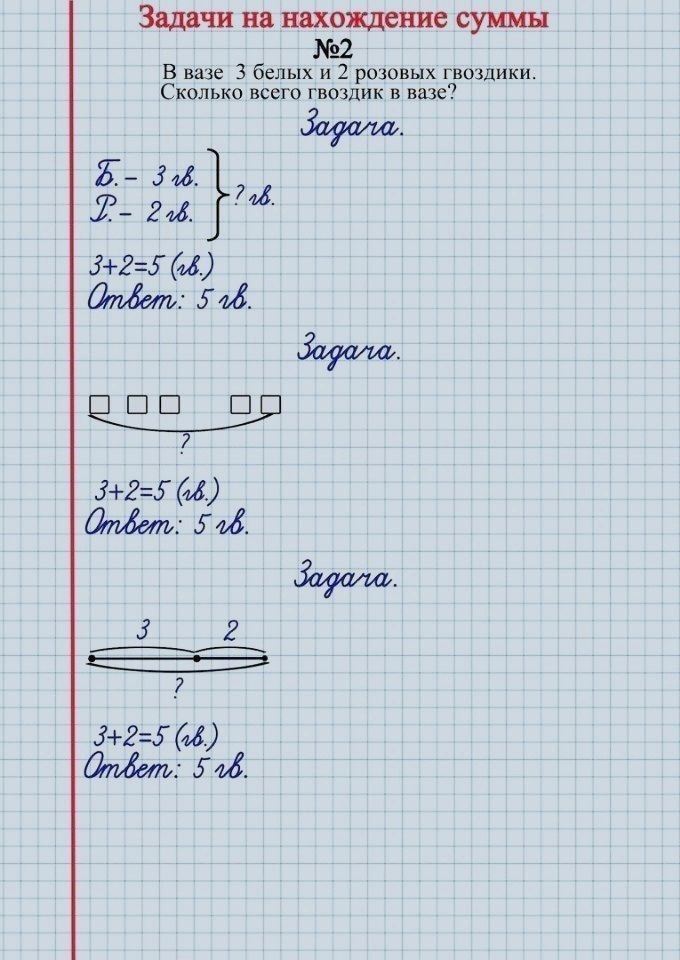 Задачи на нахождение суммы
№2
В вазе 3 белых и 2 розовых гвоздики.
Сколько всего гвоздик в вазе?
Задача.
Б. – 3 гв.
Р. – 2 гв.
? гв.
3+2=5 (гв.)
Ответ: 5 гв.
Задача.
?
3+2=5 (гв.)
Ответ: 5 гв.
Задача.
3 2
?
3+2=5 (гв.)
Ответ: 5 гв.